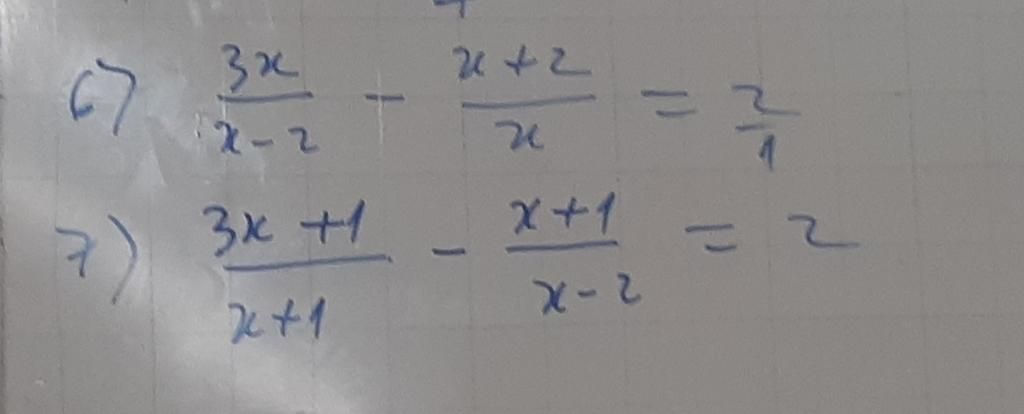 6) 3x/(x-2) - (x+2)/x = 2/1
7) (3x+1)/(x+1) - (x+1)/(x-2) = 2